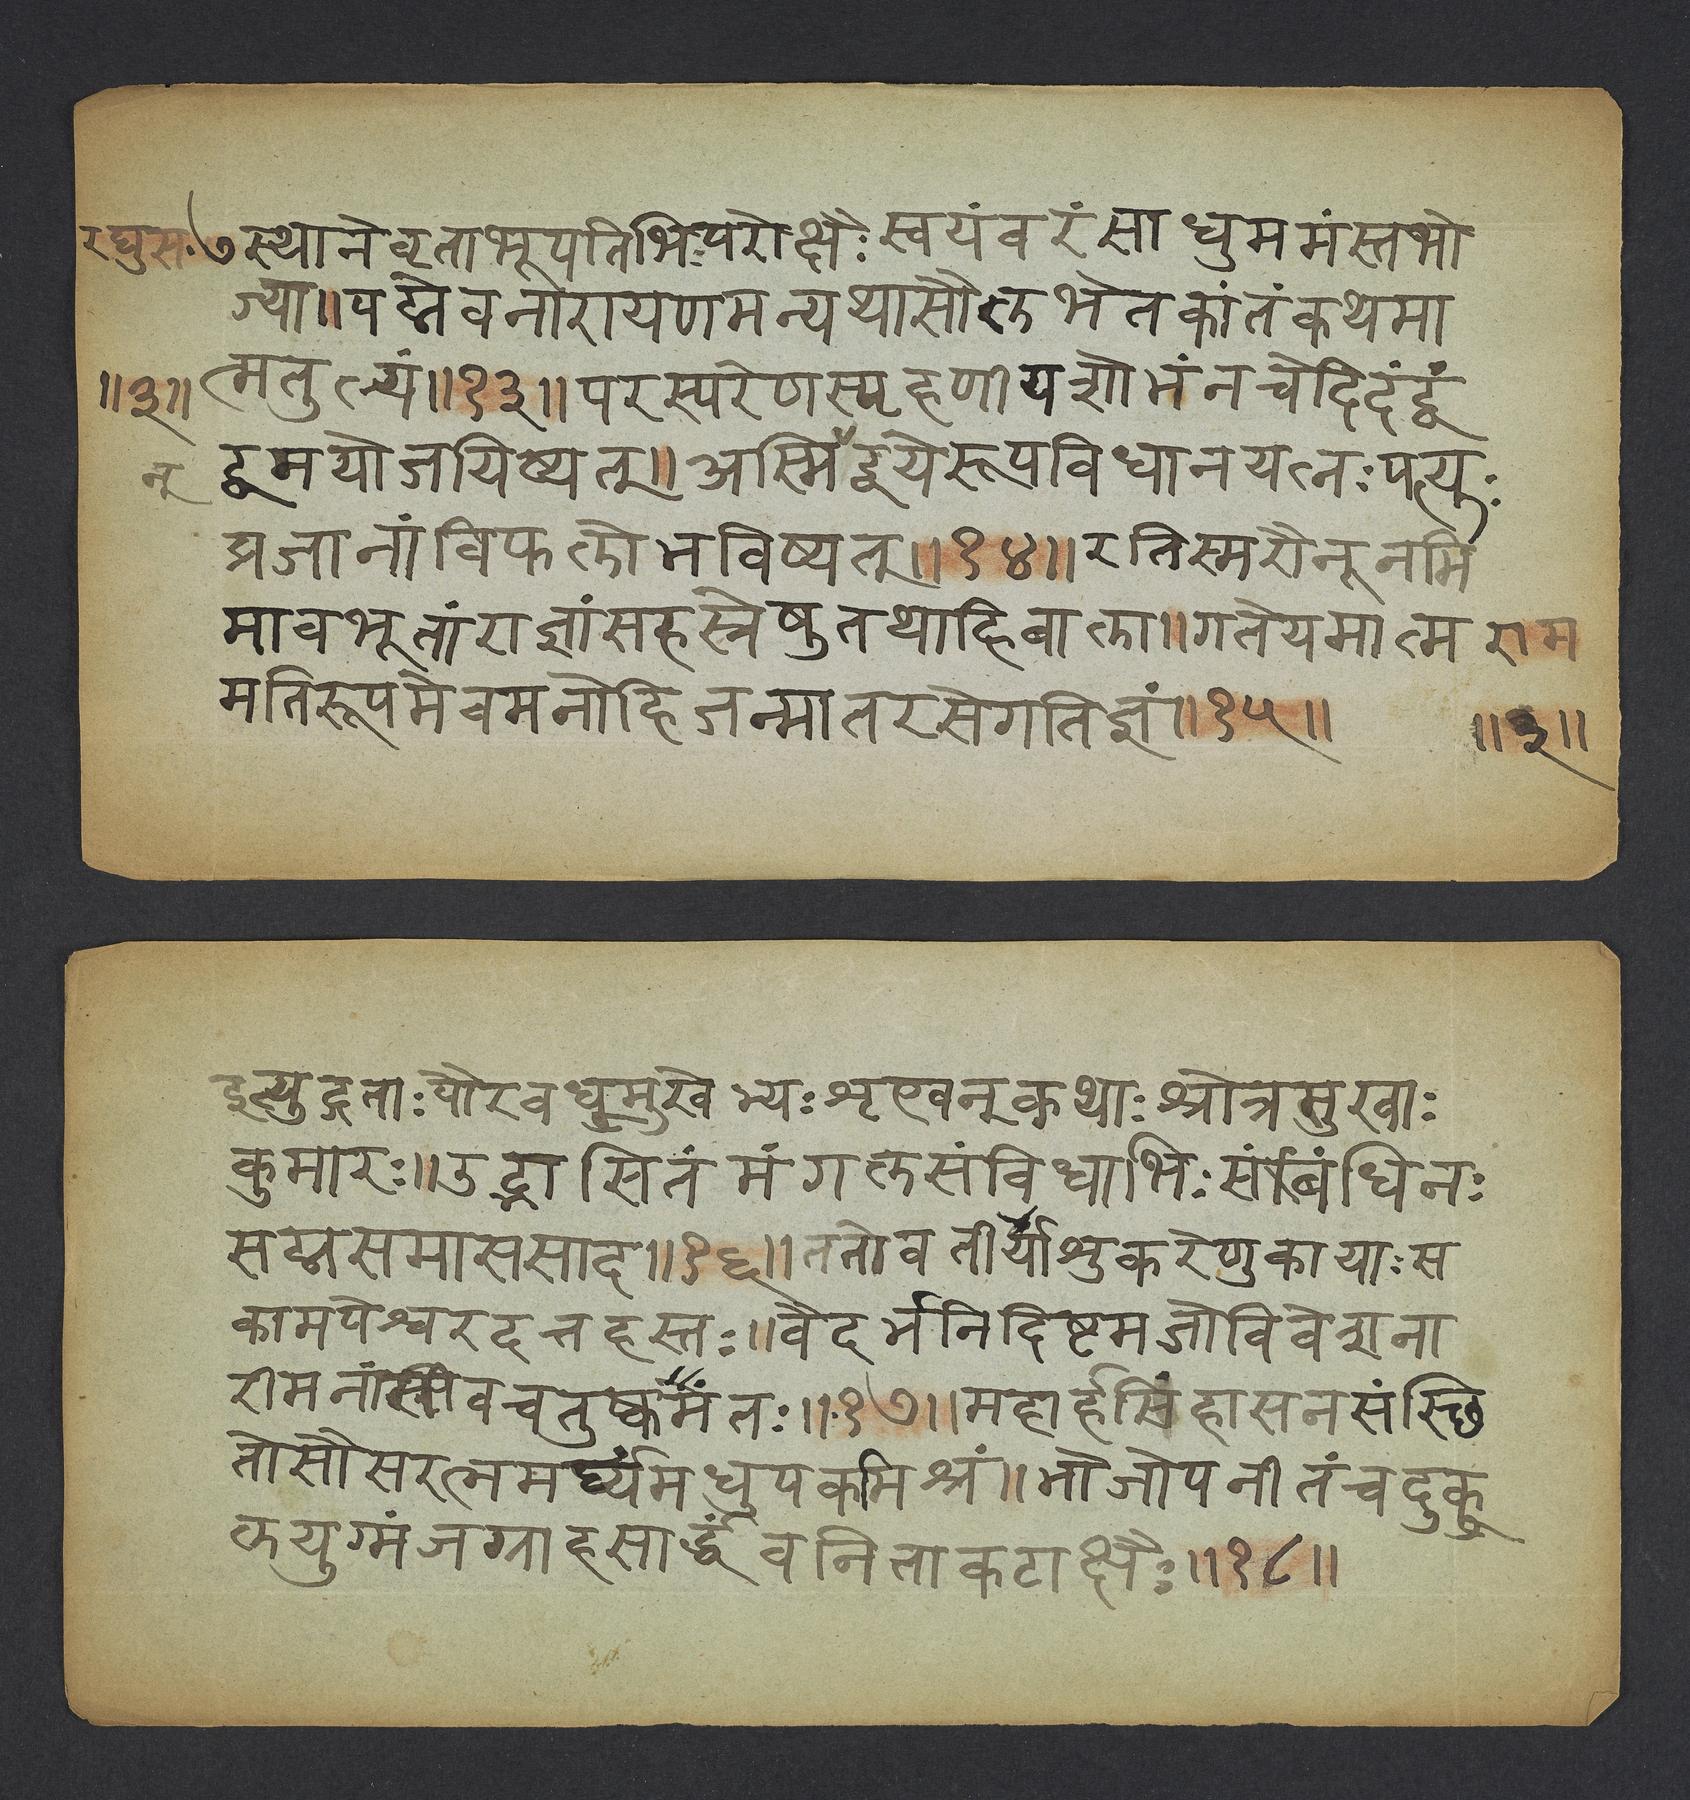 रघुस.७ स्थानेवृताभूपतिभिःपरोक्षैःस्वयंवरंसाधुममंस्तभो
ज्या॥पद्मेवनारायणमन्यथासौलभेतकांतंकथमा
॥३॥ त्मतुल्यं॥१३॥परस्परेणस्पृहणीयशोभंनचेदिदंद्वं
द्वमयोजयिष्यत्॥अस्मिद्वयेरूपविधानयत्नःपत्युः
न्
प्रजानांविफलोभविष्यत्॥१४॥रतिस्मरौनूनमि
मावभूतांराज्ञांसहस्रेषुतथाहिबाला॥गतेयमात्म राम
मतिरूपमेवमनोहिजन्मातरसंगतिज्ञं॥१५॥ ॥३॥
इत्युद्गताःपौरवधुमुखेभ्यःशृण्वन्कथाःश्रोत्रसुखाः
कुमारः॥उद्भासितंमंगलसंविधाभिःसंबंधिनः
सद्मसमाससाद॥१६॥ततोवतीर्याशुकरेणुकायाःस
कामपेश्वरदत्तहस्तः॥वैदर्भनिदिष्टमजोविवेशना
रीमनांसीवचतुष्कमंतः॥१७॥महार्हसिंहासनसंस्छि
तोसौसरत्नमर्घ्यंमधुपकमिश्रं॥भोजोपनीतंचदुकु
लयुग्मंजग्राहसार्द्धंवनिताकटाक्षैः॥१८॥